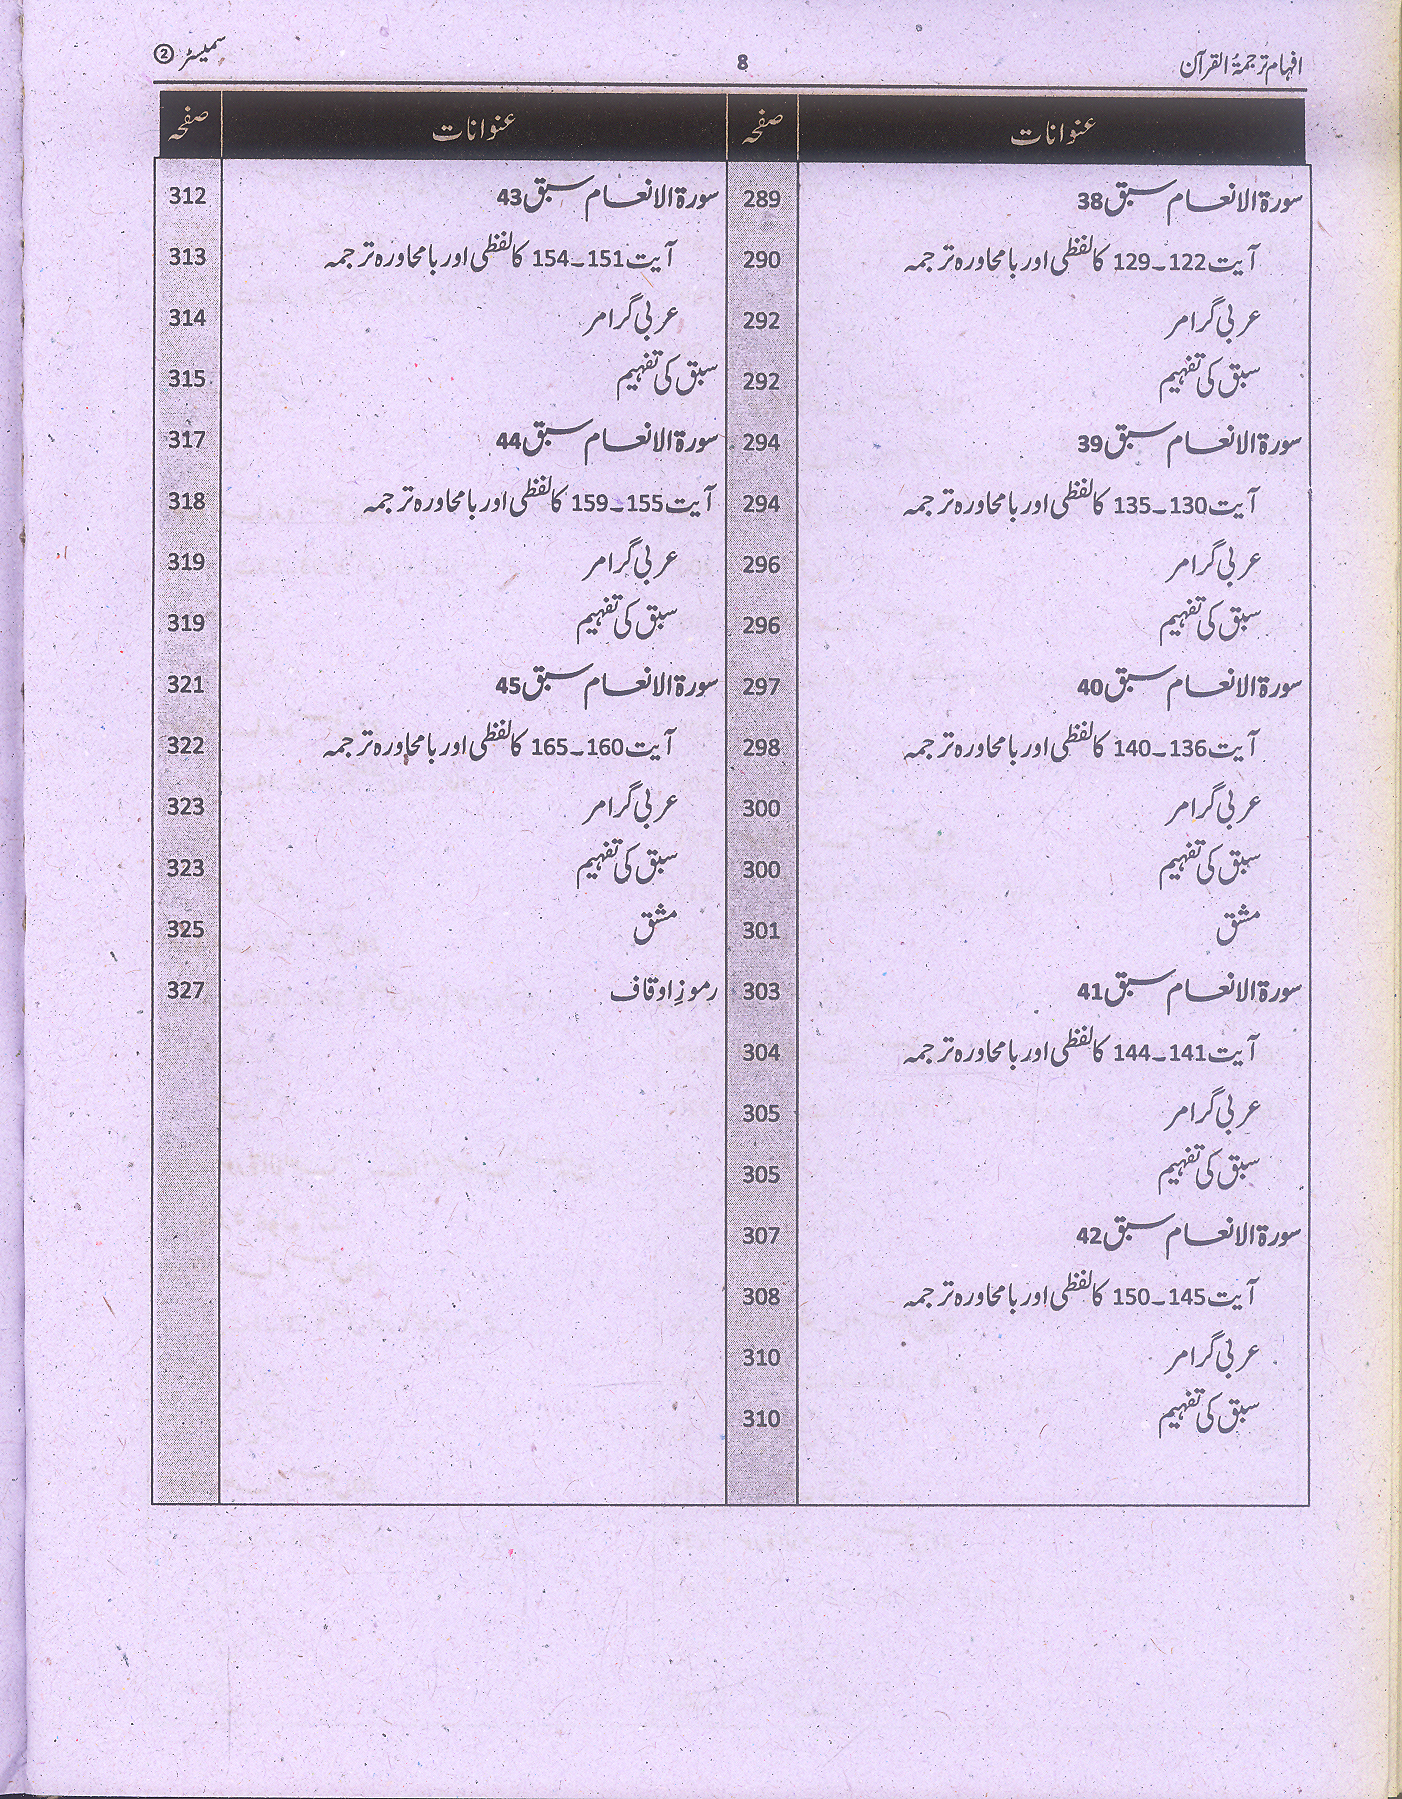 افہام ترجمۃُ القرآن 8 سمیسٹر ②
عنوانات صفحہ
سورۃ الانعام سبق 38 289
آیت 122۔129 کا لفظی اور با محاورہ ترجمہ 290
عربی گرامر 292
سبق کی تفہیم 292
سورۃ الانعام سبق 39 294
آیت 130۔135 کا لفظی اور با محاورہ ترجمہ 294
عربی گرامر 296
سبق کی تفہیم 296
سورۃ الانعام سبق 40 297
آیت 136۔140 کا لفظی اور با محاورہ ترجمہ 298
عربی گرامر 300
سبق کی تفہیم 300
مشق 301
سورۃ الانعام سبق 41 303
آیت 141۔144 کا لفظی اور با محاورہ ترجمہ 304
عربی گرامر 305
سبق کی تفہیم 305
سورۃ الانعام سبق 42 307
آیت 145۔150 کا لفظی اور با محاورہ ترجمہ 308
عربی گرامر 310
سبق کی تفہیم 310
عنوانات صفحہ
سورۃ الانعام سبق 43 312
آیت 151۔154 کا لفظی اور با محاورہ ترجمہ 313
عربی گرامر 314
سبق کی تفہیم 315
سورۃ الانعام سبق 44 317
آیت 155۔159 کا لفظی اور با محاورہ ترجمہ 318
عربی گرامر 319
سبق کی تفہیم 319
سورۃ الانعام سبق 45 321
آیت 160۔165 کا لفظی اور با محاورہ ترجمہ 322
عربی گرامر 323
سبق کی تفہیم 323
مشق 325
رموزِ اوقاف 327